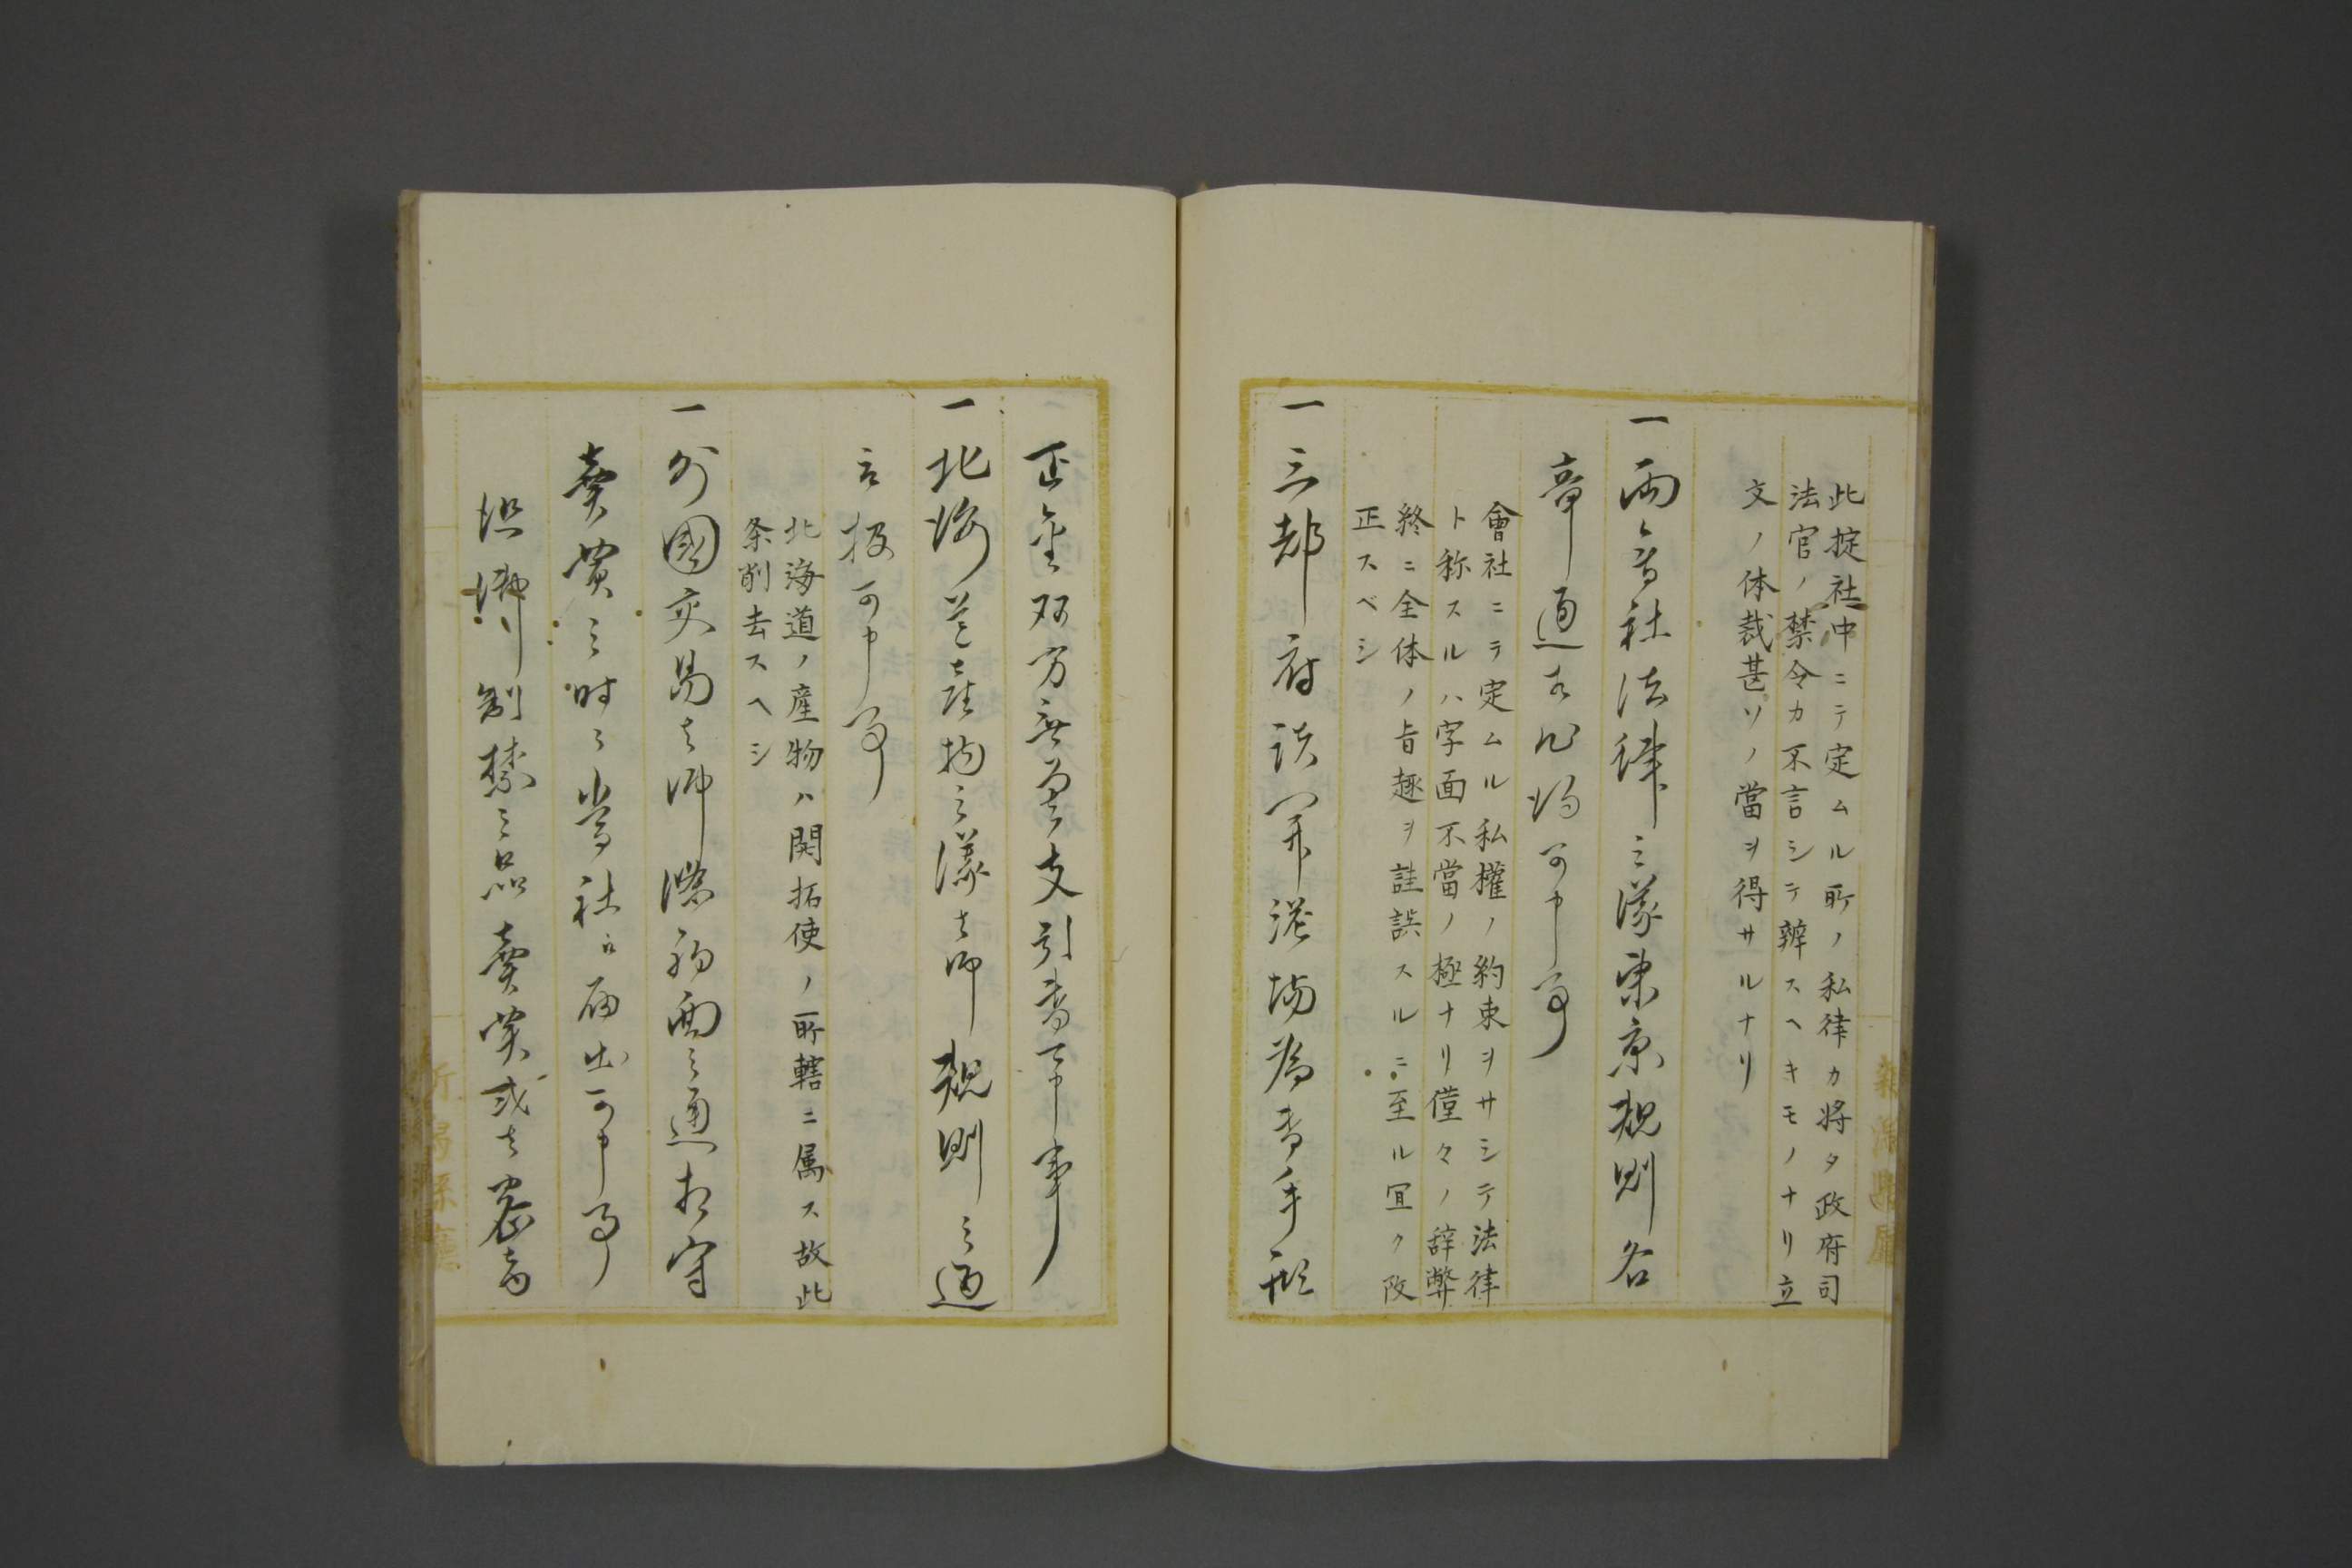 此掟社中ニテ定ムル所ノ私律カ将タ政府司
法官ノ禁令カ不言シテ辨スヘキモノナリ立
文ノ体裁甚ソノ當ヲ得サルナリ
一両會社法律之儀東京規則各
章通相心得可申事
會社ニテ定ムル私權ノ約束ヲサシテ法律
ト称スルハ字面不當ノ極ナリ僅々ノ辞弊
終ニ全体ノ旨趣ヲ詿誤スルニ至ル宜ク改
正スベシ
一三都府諸開港場為替手形
正金双方無差支引替可申事
一北海道産物之儀者御規則之通
取扱可申事
北海道ノ産物ハ開拓使ノ所轄ニ属ス故此
条削去スヘシ
一外國交易者御条約面之通相守
賣買之時々當社江届出可申事
但御制禁之品賣買或者密商
新潟縣廳
新潟縣廳